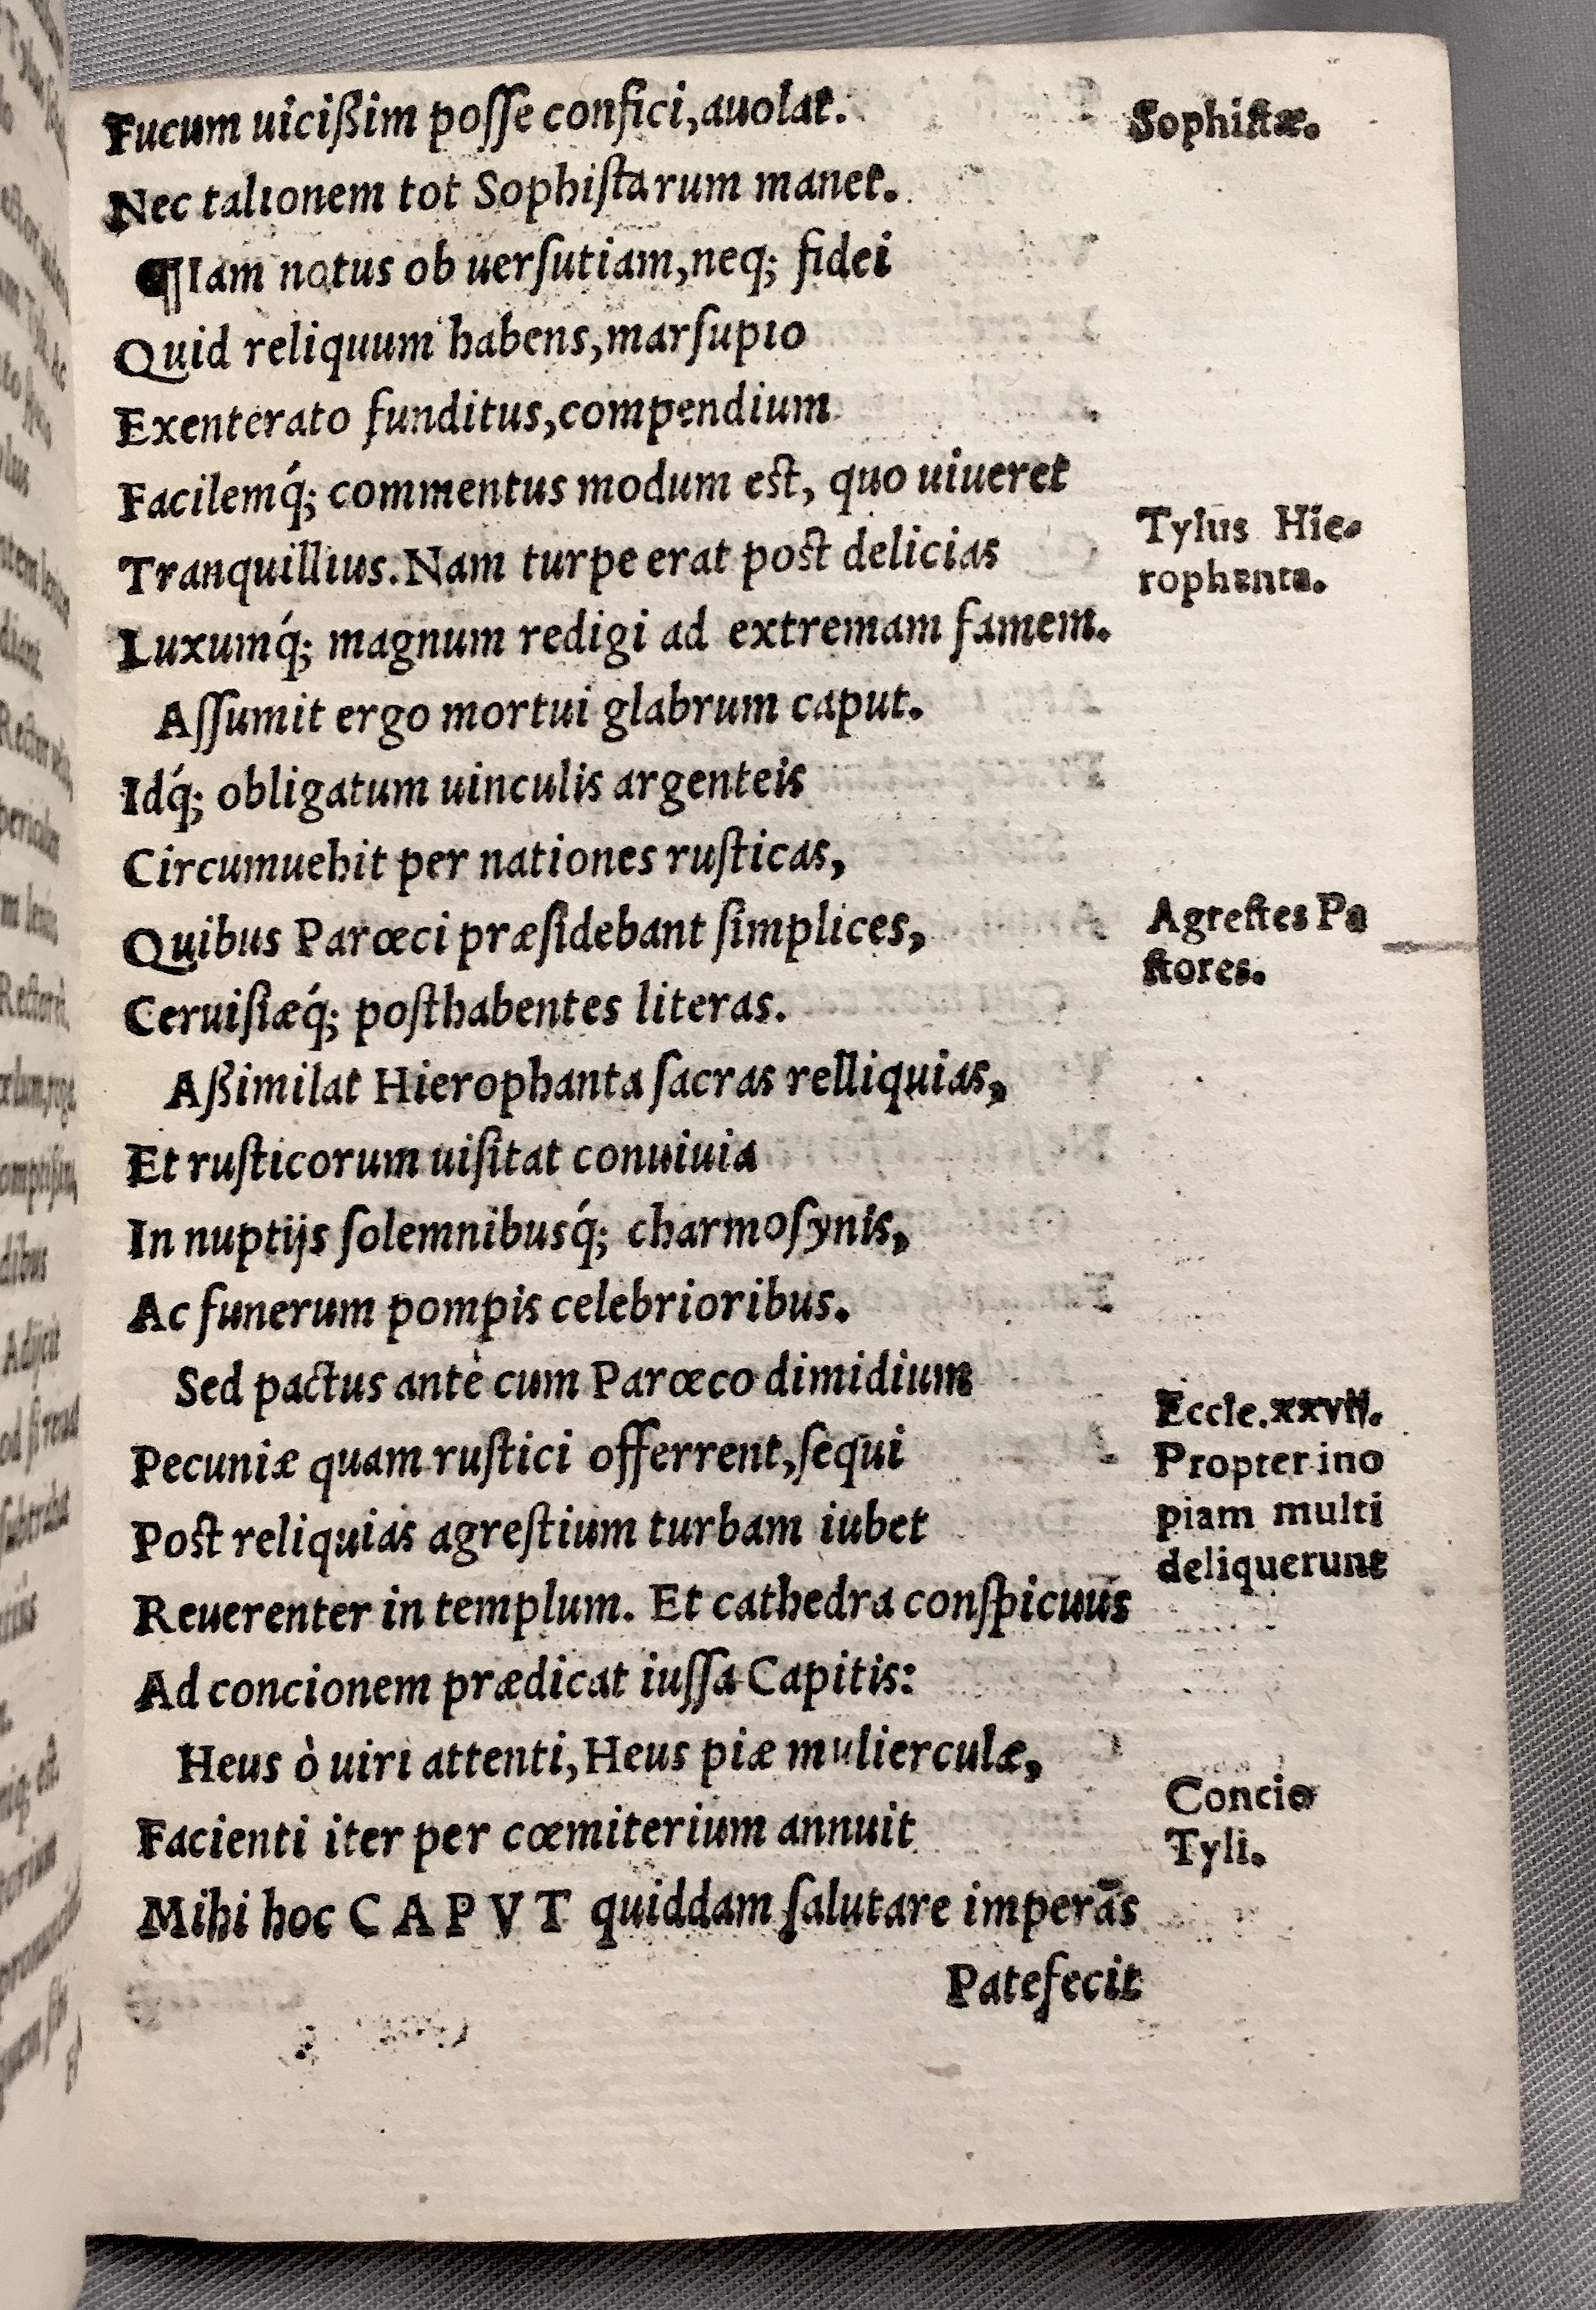 Fucum uicißim poſſe confici,auolat.
Sophiſtæ.
Nec talionem tot Sophiſtarum manet.
¶Iam notus ob uerſutiam,neq; fidei
Quid reliquum habens,marſupio
Exenterato funditus,compendium
Facilemq́; commentus modum eſt, quo uiueret
Tranquillius.Nam turpe erat poſt delicias
Tylus Hie-
rophanta.
Luxumq́; magnum redigi ad extremam famem.
Aſſumit ergo mortui glabrum caput.
Idq́; obligatum uinculis argenteis
Circumuehit per nationes ruſticas,
Quibus Parœci præſidebant ſimplices,
Agreſtes Pa
ſtores.
Ceruiſiæq́; poſthabentes literas.
Aßimilat Hierophanta ſacras relliquias,
Et ruſticorum uiſitat conuiuia
In nuptijs ſolemnibusq́; charmoſynis,
Ac funerum pompis celebrioribus.
Sed pactus antè cum Parœco dimidium
Eccle.xxvij.
Propter ino
piam multi
deliquerunt
Pecuniæ quam ruſtici offerrent,ſequi
Poſt reliquias agreſtium turbam iubet
Reuerenter in templum. Et cathedra conſpicuus
Ad concionem prædicat iuſſa Capitis:
Heus ò uiri attenti,Heus piæ mulierculæ,
Concio
Tyli.
Facienti iter per cœmiterium annuit
Mihi hoc CAPVT quiddam ſalutare imperās
Patefecit